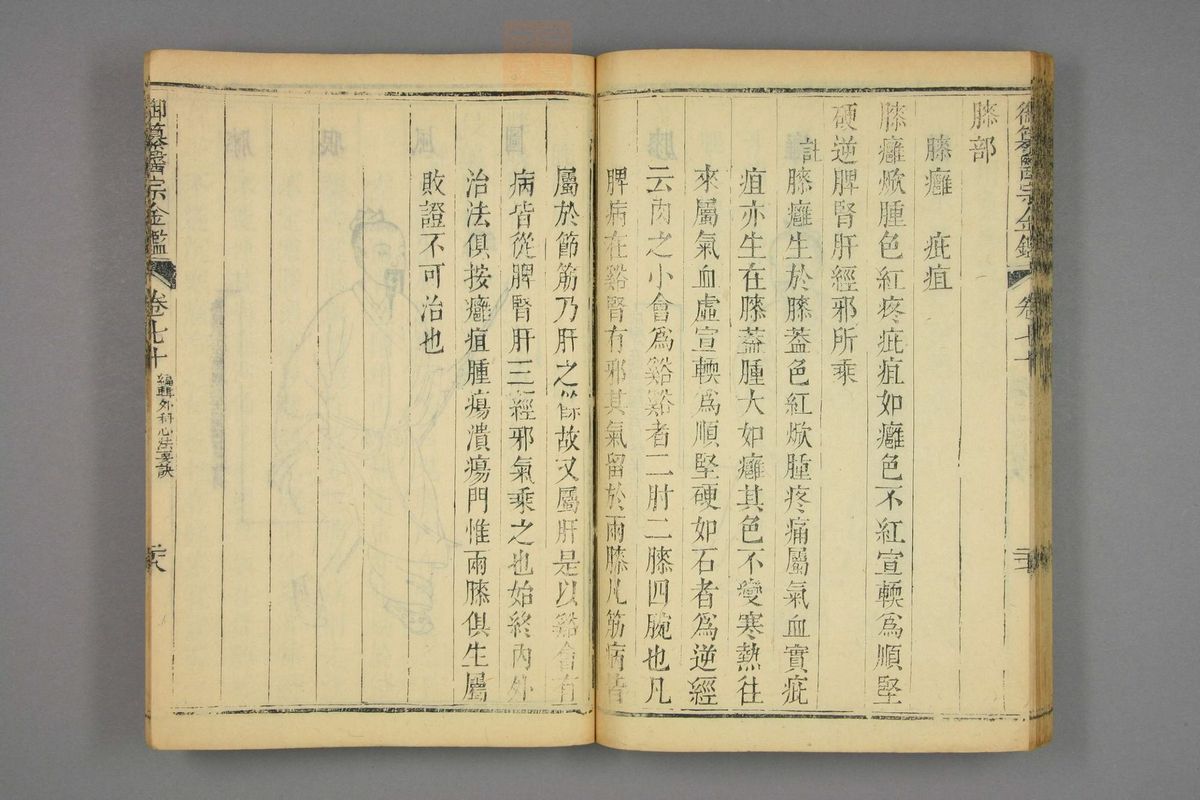 御纂醫宗金鑑 卷七十
膝部
膝癰 疵疽
膝癰焮腫色紅疼疵疽如癰色不紅宣輭爲順堅
硬逆脾腎肝經邪所乘
註膝癰生於膝蓋色紅焮腫疼痛屬氣血實疵
疽亦生在膝蓋腫大如癰其色不變寒熱往
來屬氣血虛宣輭爲順堅硬如石者爲逆經
云肉之小會爲谿谿者二肘二膝四腕也凡
脾病在谿腎有邪其氣留於兩膝凡筋病皆
屬於節筋乃肝之餘故又屬肝是以谿會有
病皆從脾腎肝三經邪氣乘之也始終內外
治法俱按癰疽腫瘍潰瘍門惟兩膝俱生屬
敗證不可治也
御纂醫宗金鑑 卷七十 編輯外科心法要訣 二十八